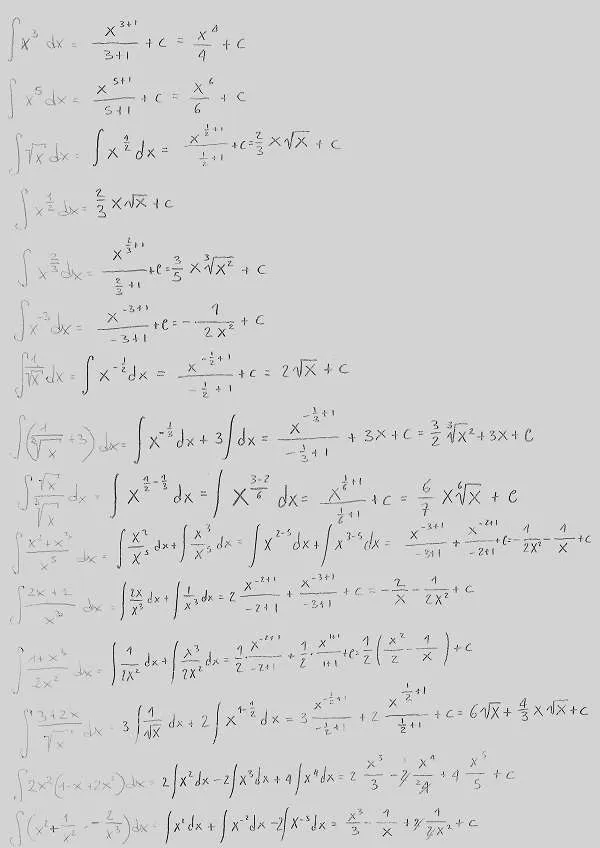 ∫ x³ dx = x^(3+1)/(3+1) + c = x⁴/4 + c
∫ x⁵ dx = x^(5+1)/(5+1) + c = x⁶/6 + c
∫ √x dx = ∫ x^(1/2) dx = x^(1/2+1)/(1/2+1) + c = 2/3 x√x + c
∫ x^(1/2) dx = 2/3 x√x + c
∫ x^(2/3) dx = x^(2/3+1)/(2/3+1) + c = 3/5 x ∛x² + c
∫ x^(-3) dx = x^(-3+1)/(-3+1) + c = - 1/(2x²) + c
∫ 1/√x dx = ∫ x^(-1/2) dx = x^(-1/2+1)/(-1/2+1) + c = 2√x + c
∫ (1/∛x + 3) dx = ∫ x^(-1/3) dx + 3 ∫ dx = x^(-1/3+1)/(-1/3+1) + 3x + c = 3/2 ∛x² + 3x + c
∫ √x/∛x dx = ∫ x^(1/2-1/3) dx = ∫ x^((3-2)/6) dx = x^(1/6+1)/(1/6+1) + c = 6/7 x ⁶√x + c
∫ (x²+x³)/x⁵ dx = ∫ x²/x⁵ dx + ∫ x³/x⁵ dx = ∫ x^(2-5) dx + ∫ x^(3-5) dx = x^(-3+1)/(-3+1) + x^(-2+1)/(-2+1) + c = - 1/(2x²) - 1/x + c
∫ (2x+1)/x³ dx = ∫ 2x/x³ dx + ∫ 1/x³ dx = 2 x^(-2+1)/(-2+1) + x^(-3+1)/(-3+1) + c = - 2/x - 1/(2x²) + c
∫ (1+x³)/(2x²) dx = ∫ 1/(2x²) dx + ∫ x³/(2x²) dx = 1/2 · x^(-2+1)/(-2+1) + 1/2 · x^(1+1)/(1+1) + c = 1/2 (x²/2 - 1/x) + c
∫ (3+2x)/√x dx = 3 ∫ 1/√x dx + 2 ∫ x^(1-1/2) dx = 3 x^(-1/2+1)/(-1/2+1) + 2 x^(1/2+1)/(1/2+1) + c = 6√x + 4/3 x√x + c
∫ 2x²(1-x+2x²) dx = 2 ∫ x² dx - 2 ∫ x³ dx + 4 ∫ x⁴ dx = 2 x³/3 - 2 x⁴/4 + 4 x⁵/5 + c
∫ (x² + 1/x² - 2/x³) dx = ∫ x² dx + ∫ x^(-2) dx - 2 ∫ x^(-3) dx = x³/3 - 1/x + 2 1/(2x²) + c